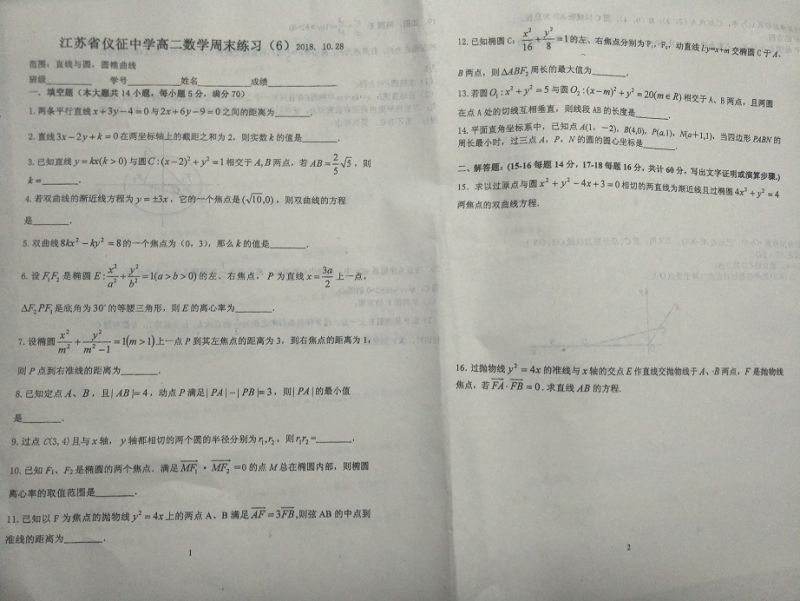 江苏省仪征中学高二数学周末练习（6）2018. 10. 28
范围：直线与圆，圆锥曲线
班级________ 学号________姓名________成绩________
一、填空题（本大题共 14 小题，每小题 5 分，满分 70）
1.两条平行直线 x+3y−4=0 与 2x+6y−9=0 之间的距离为________.
2.直线 3x−2y+k=0 在两坐标轴上的截距之和为 2，则实数 k 的值是________.
3.已知直线 y=kx(k>0) 与圆 C:(x−2)²+y²=1 相交于 A,B 两点，若 AB=2/5√5，则
k=________.
4.若双曲线的渐近线方程为 y=±3x，它的一个焦点是(√10,0)，则双曲线的方程
是________.
5.双曲线 8kx²−ky²=8 的一个焦点为（0，3），那么 k 的值是________.
6.设 F₁F₂ 是椭圆 E: x²/a²+y²/b²=1(a>b>0) 的左、右焦点，P 为直线 x=3a/2 上一点，
ΔF₂PF₁ 是底角为 30° 的等腰三角形，则 E 的离心率为________.
7.设椭圆 x²/m²+y²/(m²−1)=1(m>1) 上一点 P 到其左焦点的距离为 3，到右焦点的距离为 1，
则 P 点到右准线的距离为________.
8.已知定点 A、B，且|AB|=4，动点 P 满足|PA|−|PB|=3，则|PA|的最小值
是________.
9.过点 C(3,4)且与 x 轴，y 轴都相切的两个圆的半径分别为 r₁,r₂，则 r₁r₂=________.
10.已知 F₁、F₂ 是椭圆的两个焦点．满足 MF₁·MF₂=0 的点 M 总在椭圆内部，则椭圆
离心率的取值范围是________.
11.已知以 F 为焦点的抛物线 y²=4x 上的两点 A、B 满足 AF=3FB,则弦 AB 的中点到
准线的距离为________.
1
12.已知椭圆 C: x²/16+y²/8=1 的左、右焦点分别为 F₁、F₂，动直线 l:y=x+m 交椭圆 C 于 A、
B 两点，则 ΔABF₂ 周长的最大值为________.
13.若圆 O₁:x²+y²=5 与圆 O₂:(x−m)²+y²=20(m∈R) 相交于 A、B 两点，且两圆
在点 A 处的切线互相垂直，则线段 AB 的长度是________.
14.平面直角坐标系中，已知点 A(1，−2)，B(4,0)，P(a,1)，N(a+1,1)，当四边形 PABN 的
周长最小时，过三点 A，P，N 的圆的圆心坐标是________.
二、解答题：(15-16 每题 14 分，17-18 每题 16 分，共计 60 分，写出文字证明或演算步骤.)
15．求以过原点与圆 x²+y²−4x+3=0 相切的两直线为渐近线且过椭圆 4x²+y²=4
两焦点的双曲线方程.
16.过抛物线 y²=4x 的准线与 x 轴的交点 E 作直线交抛物线于 A、B 两点，F 是抛物线
焦点，若 FA·FB=0.求直线 AB 的方程.
2